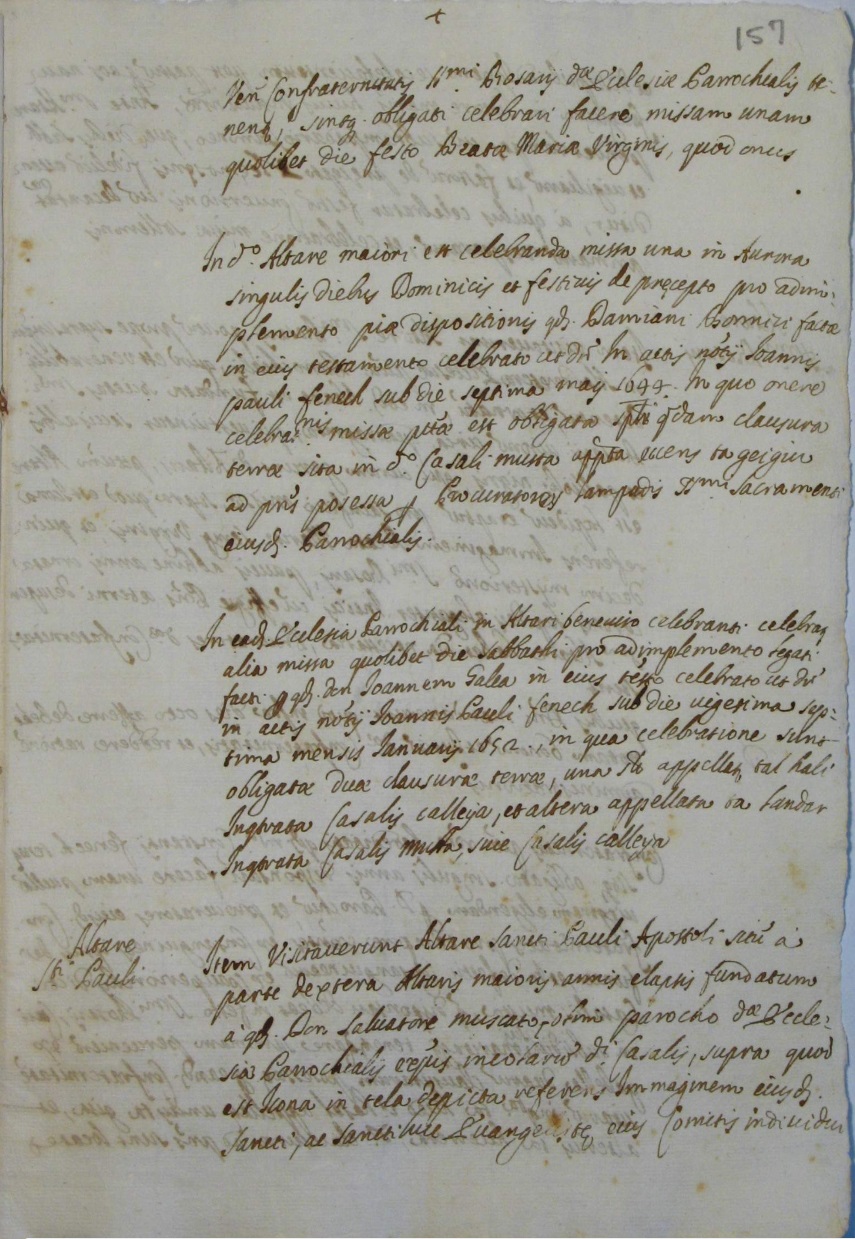 157
Ven. Confraternitatis SSmi. Rosarij dae Ecclesiae Parrochialis te-
nentur, sintq. obligati celebrari facere missam unam
quolibet die festo Beatae Mariae Virginis, quod onus
In do. Altare maiori est celebranda missa una in Aurora
singulis diebus Dominicis et festivis de praecepto pro adim-
plemento piae dispositionis qd. Damiani Bonnici factae
in eius testamento celebrato ut dr In actis notij Ioannis
pauli fenech sub die septima maij 1644. In quo onere
celebraonis missae ptae est obligata spliter qdam clausura
terrae sita in do. Casali musta appta
ad pns posessa p Procuratores lampadis SSmi Sacramenti
eiusd. Parrochialis.
In ead. Ecclesia Parrochiali in Altari beneviso celebranti celebrat
alia missa quolibet die sabbathi pro adimplemento legati
facti p qd. don Ioannem Galea in eius testo celebrato ut dr
in actis notij Ioannis Pauli fenech sub die vigesima sep-
tima mensis Ianuarij 1652., in qua celebratione sunt
obligatae duae clausurae terrae, una appellat. tal hali
In qtrata Casalis calleya, et altera appellata ta landar
In qtrata Casalis musta, sive Casalis calleya
Altare
Sti Pauli
Item Visitaverunt Altare Sancti Pauli Apostoli situm a
parte dextera Altaris maioris annis elapsis fundatum
à qd. Don Salvatore muscat, olim parocho dae Eccle-
siae Parrochialis incolarum di Casalis, supra quod
est Icona in tela depicta referens Immaginem eiusd.
Sancti, ac Sancti lucae Evangelistae eius Comitis individui